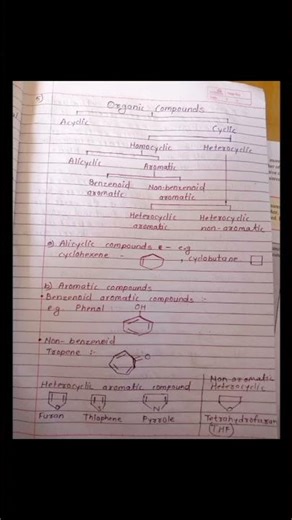 Organic Compounds
Acyclic Cyclic
Homocyclic Heterocyclic
Alicyclic Aromatic
Benzenoid aromatic Non-benzenoid aromatic
Heterocyclic aromatic Heterocyclic non-aromatic
a) Alicyclic compounds - eg
cyclohexene :- , cyclobutane
b) Aromatic compounds
• Benzenoid aromatic compounds :-
eg. Phenol :- OH
• Non-benzenoid
Tropone :- O
Heterocyclic aromatic compound
Non aromatic Heterocyclic
O S N O
Furan Thiophene Pyrrole Tetrahydrofuran
(THF)